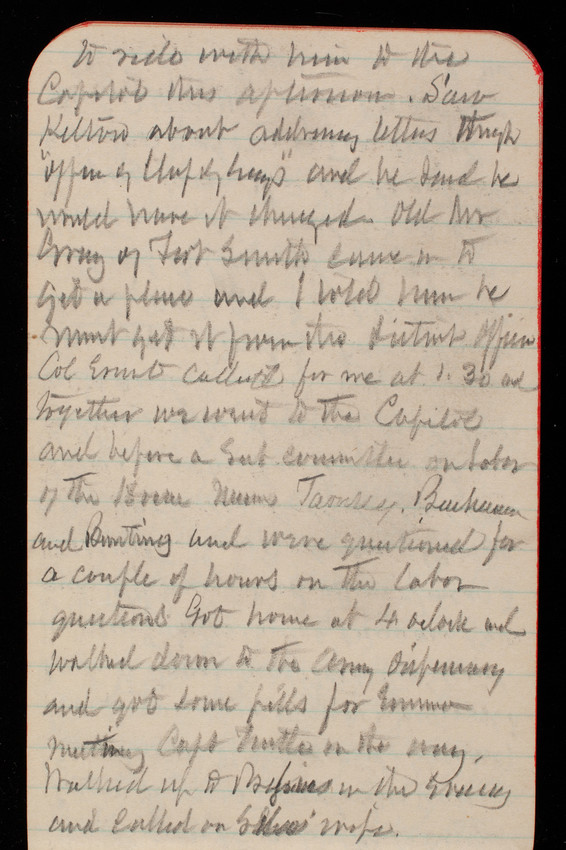 to ride with him to the
Capitol this afternoon. Saw
Kelton about addressing letters through
"office of Chf of Engs" and he said he
would have it changed. Old Mr
of Fort Smith came in to
get a place and I told him he
must get it from the District Officer
Col Ernst called for me at 1:30 and
together we went to the Capitol
and before a Sub committee on Labor
of the House Messrs Tawney, Buchanan
and Bunting and were questioned for
a couple of hours on the labor
questions Got home at 4 oclock and
walked down to the Army Dispensary
and got some pills for Emma
meeting Capt Tuttle on the way.
Walked up to in the Evening
and called on wife.